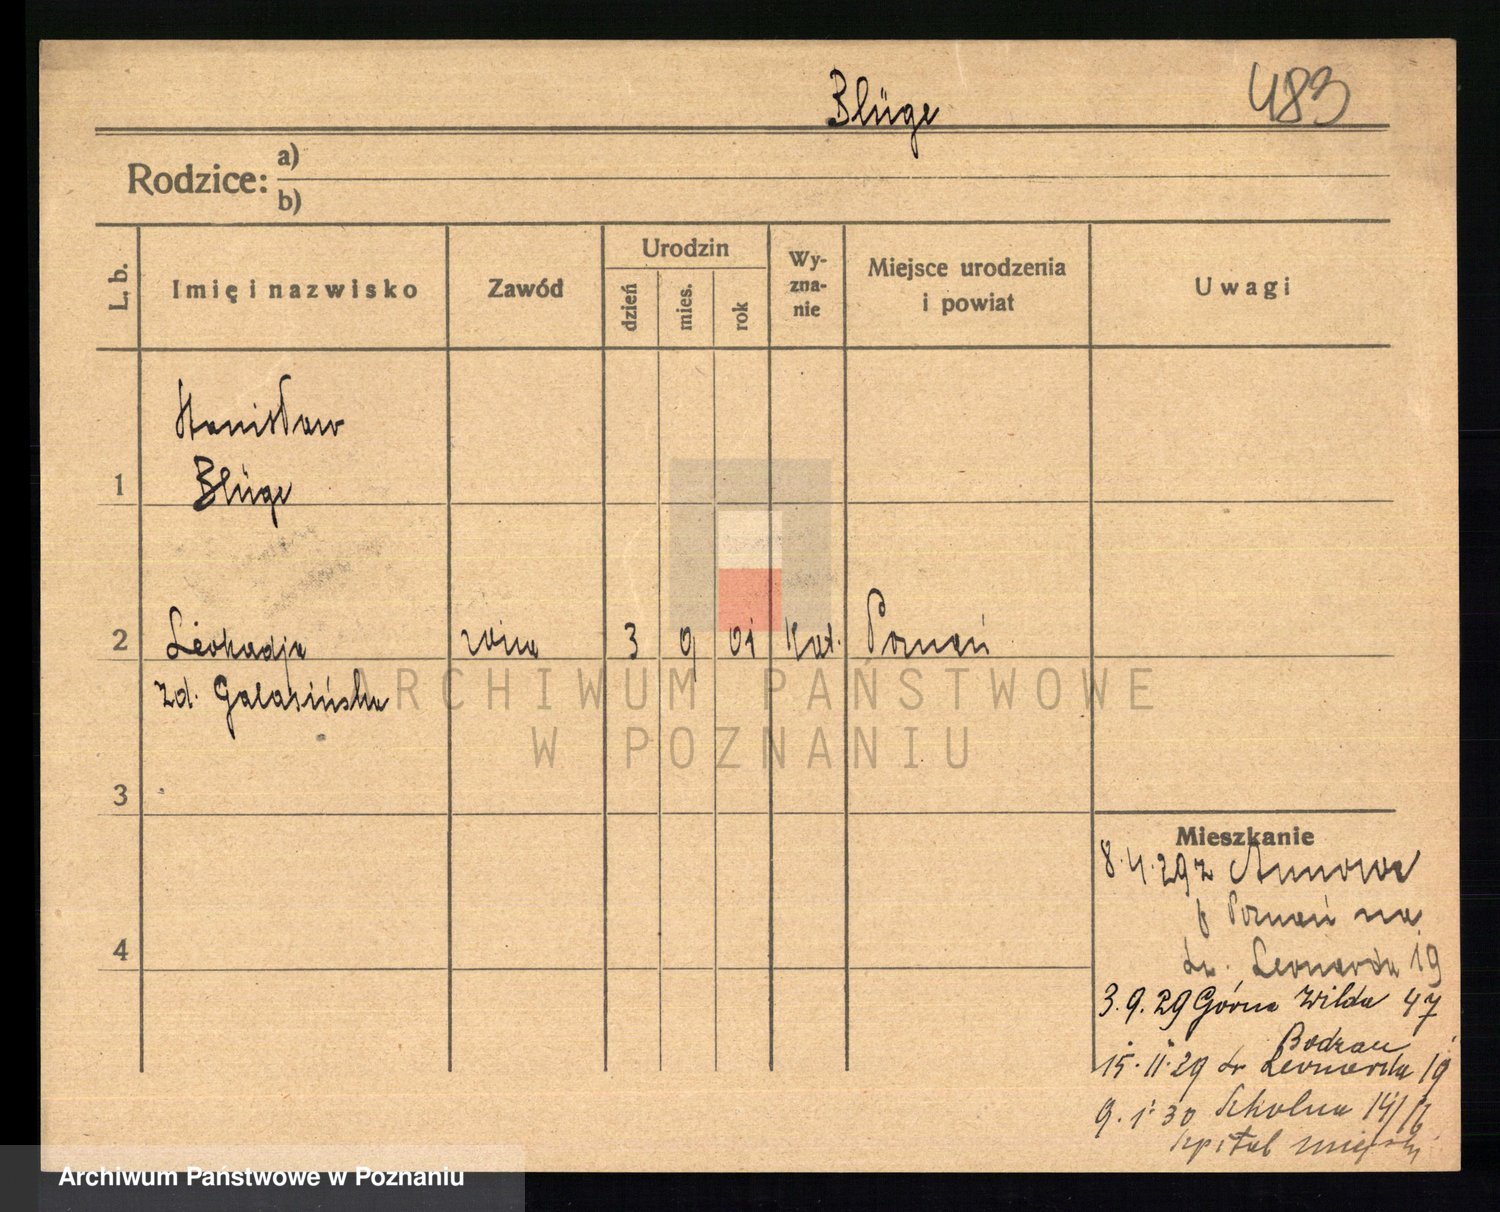 Blüge 483
Rodzice: a)
b)
L. b. Imię i nazwisko Zawód Urodzin dzień mies. rok Wy-zna-nie Miejsce urodzenia i powiat Uwagi
Stanisław
1 Blüge
2 Leokadja żona 3 9 01 Kat. Poznań
zd. Galasińska
ARCHIWUM PAŃSTWOWE
W POZNANIU
3
Mieszkanie
8.4.29 z Annowo
Poznań na
4
dr. Leonarda 19
3.9.29 Górna Wilda 47
15.11.29 dr Leonarda 19
9.1.30 Szkolna 14/
szpital miejski
Archiwum Państwowe w Poznaniu